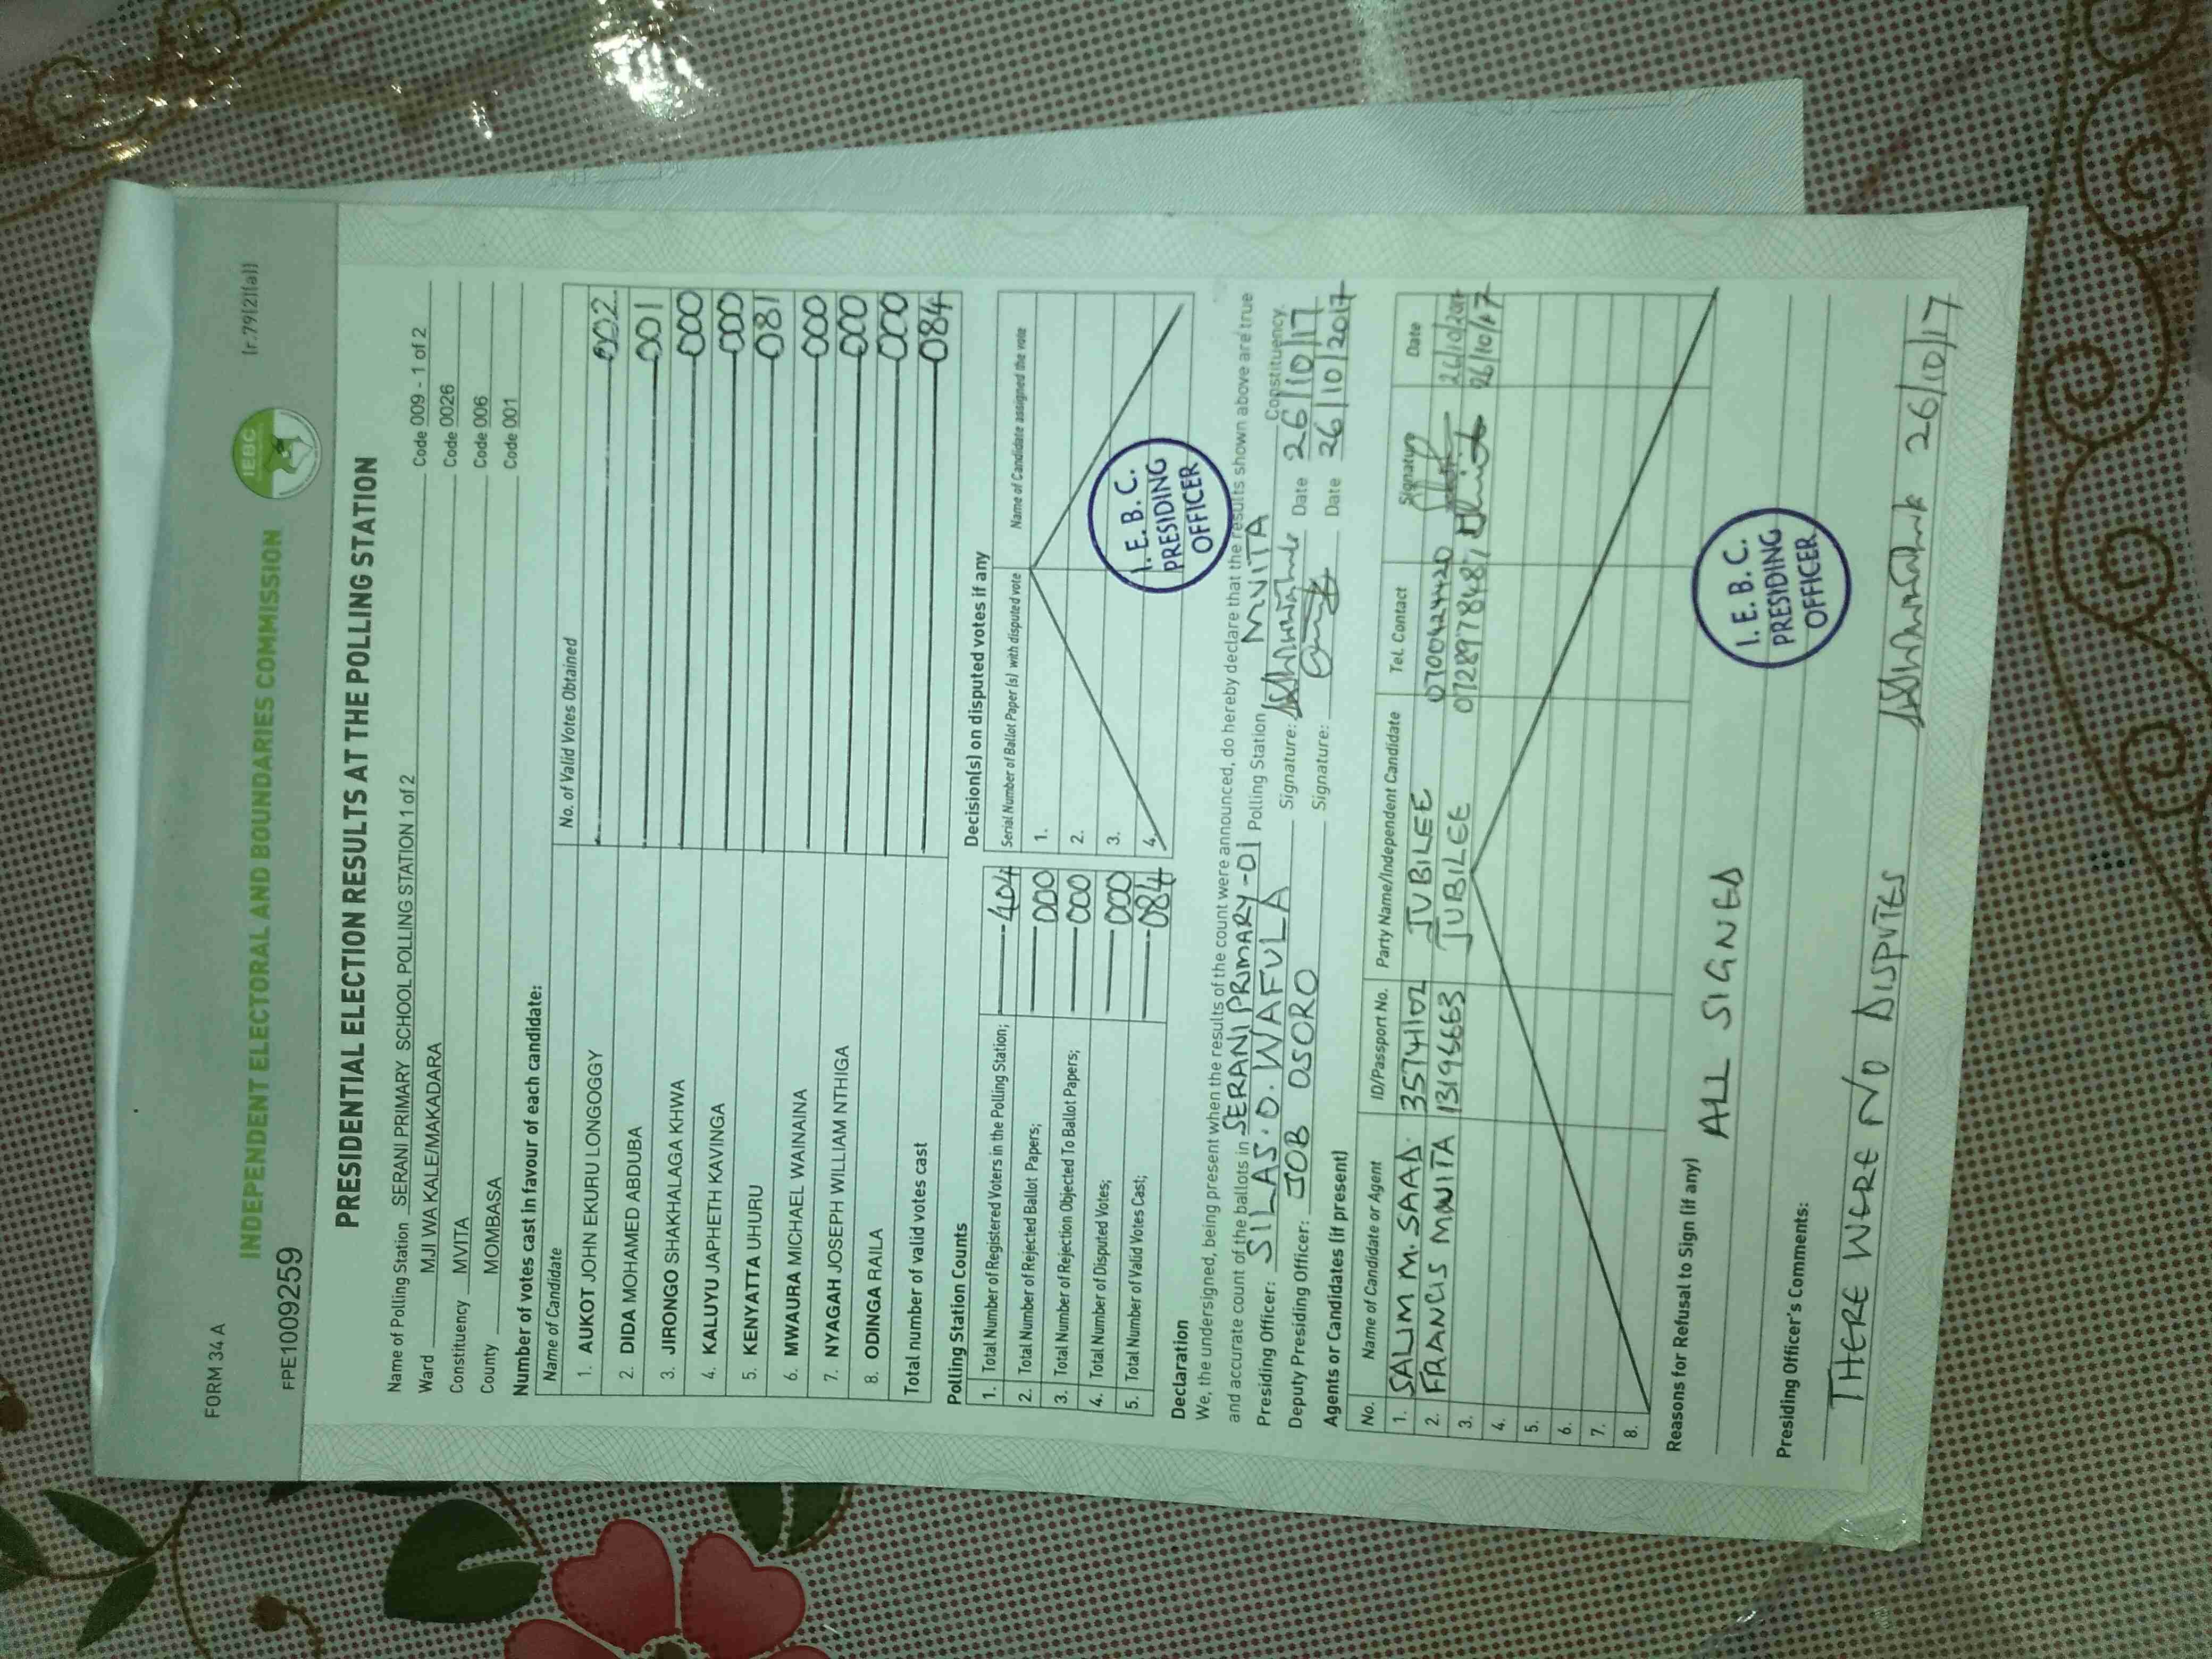 FORM 34 A
(r.79(2)(a))
INDEPENDENT ELECTORAL AND BOUNDARIES COMMISSION
IEBC
FPE1009259
PRESIDENTIAL ELECTION RESULTS AT THE POLLING STATION
Name of Polling Station SERANI PRIMARY SCHOOL POLLING STATION 1 of 2 Code 009 - 1 of 2
Ward MJI WA KALE/MAKADARA Code 0026
Constituency MVITA Code 006
County MOMBASA Code 001
Number of votes cast in favour of each candidate:
Name of Candidate No. of Valid Votes Obtained
1. AUKOT JOHN EKURU LONGOGGY 002
2. DIDA MOHAMED ABDUBA 001
3. JIRONGO SHAKHALAGA KHWA 000
4. KALUYU JAPHETH KAVINGA 000
5. KENYATTA UHURU 081
6. MWAURA MICHAEL WAINAINA 000
7. NYAGAH JOSEPH WILLIAM NTHIGA 000
8. ODINGA RAILA 000
Total number of valid votes cast 084
Polling Station Counts
1. Total Number of Registered Voters in the Polling Station; 404
2. Total Number of Rejected Ballot Papers; 000
3. Total Number of Rejection Objected To Ballot Papers; 000
4. Total Number of Disputed Votes; 000
5. Total Number of Valid Votes Cast; 084
Decision(s) on disputed votes if any
Serial Number of Ballot Paper (s) with disputed vote Name of Candidate assigned the vote
1.
2.
3.
4.
I. E. B. C.
PRESIDING
OFFICER
Declaration
We, the undersigned, being present when the results of the count were announced, do hereby declare that the results shown above are true
and accurate count of the ballots in SERANI PRIMARY-01 Polling Station MVITA Constituency.
Presiding Officer: SILAS. O. WAFULA Signature: Date 26/10/17
Deputy Presiding Officer: JOB OSORO Signature: Date 26/10/2017
Agents or Candidates (if present)
No. Name of Candidate or Agent ID/Passport No. Party Name/Independent Candidate Tel. Contact Signature Date
1. SALIM M. SAAD. 35741102 JUBILEE 0700424420 26/10/2017
2. FRANCIS MWNITA 13195663 JUBILEE 0728978481 26/10/17
3.
4.
5.
6.
7.
8.
Reasons for Refusal to Sign (if any)
ALL SIGNED
I. E. B. C.
PRESIDING
OFFICER
Presiding Officer's Comments:
THERE WERE NO DISPUTES 26/10/17